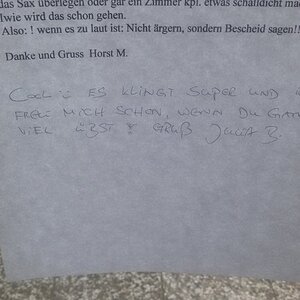 das Sax überlegen oder gar ein Zimmer kpl. etwas schalldicht
wie wird das schon gehen.
Also: ! wenn es zu laut ist: Nicht ärgern, sondern Bescheid sagen!!
Danke und Gruss Horst M.
Cool :) ES KLINGT SUPER UND
FREUE MICH SCHON, WENN DU
VIEL ÜBST! GRUß JULIA B.